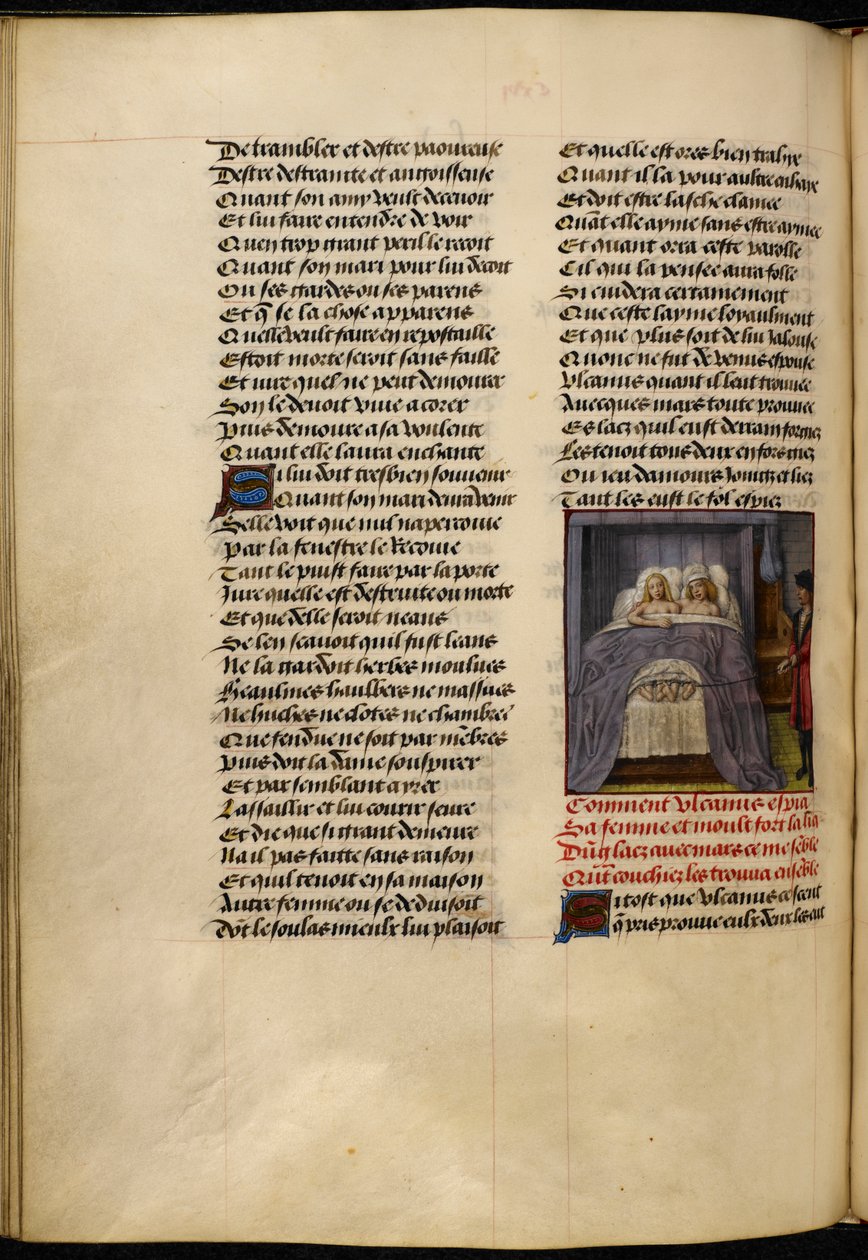 De trambler et destre paoureuse
Destre destrainte et angoisseuse
Quant son amy veult decevoir
Et lui faire entendre de voir
Quen trop grant peril le recoit
Quant son mari pour lui decoit
Ou ses gardes ou ses parens
Et q̃ se la chose apparens
Quelle veult faire en repostaille
Estoit morte seroit sans faille
Et iure quel ne peut demourer
Son le devoit vive acorer
Puis demoure a sa voulente
Quant elle laura enchante
Si lui doit tresbien souvenir
Quant son mari devra venir
Selle voit que nul napercoive
Par la fenestre le Recoive
Tant le puist faire par la porte
Jure quelle est destruite ou morte
Et que delle seroit neans
Se len scavoit quil fust leans
Ne la gardoit herbes moulues
Heaulmes haulbers ne massues
Ne huches ne clotes ne chambres
Que fendue ne soit par mẽbres
Puis doit la dame souspirer
Et par semblant ayrer
Lassaillir et lui courir seure
Et die que si grant demeure
Na il pas faitte sans raison
Et quil tenoit en sa maison
Autre femme ou se deduisoit
Dõt le soulas mieulx lui plaisoit
Et quelle est ores bien trahye
Quant il la pour aultre enhaye
Et doit estre lasche clamee
Quãt elle ayme sans estre aymee
Et quant orra ceste parolle
Cil qui la pensee aura folle
Si cuidera certainement
Que ceste layme loyaulment
Et que plus soit de lui Jalouse
Quonc ne fut de venus espouse
Vlcanus quant il leut trouvee
Avecques mars toute prouvee
Es lacz quil eust derrain forgiez
Les tenoit tous deux en forgiez
Ou ieu damours Joingz et liez
Tant les eust le fol espiez
Comment Vlcanus espia
Sa femme et moult fort la lia
Dũg lacz avec mars ce me sẽble
Quãt couchiez les trouva ensẽble
Si tost que Vlcanus ce scent
q̃ pris prouve eulx deux les eut